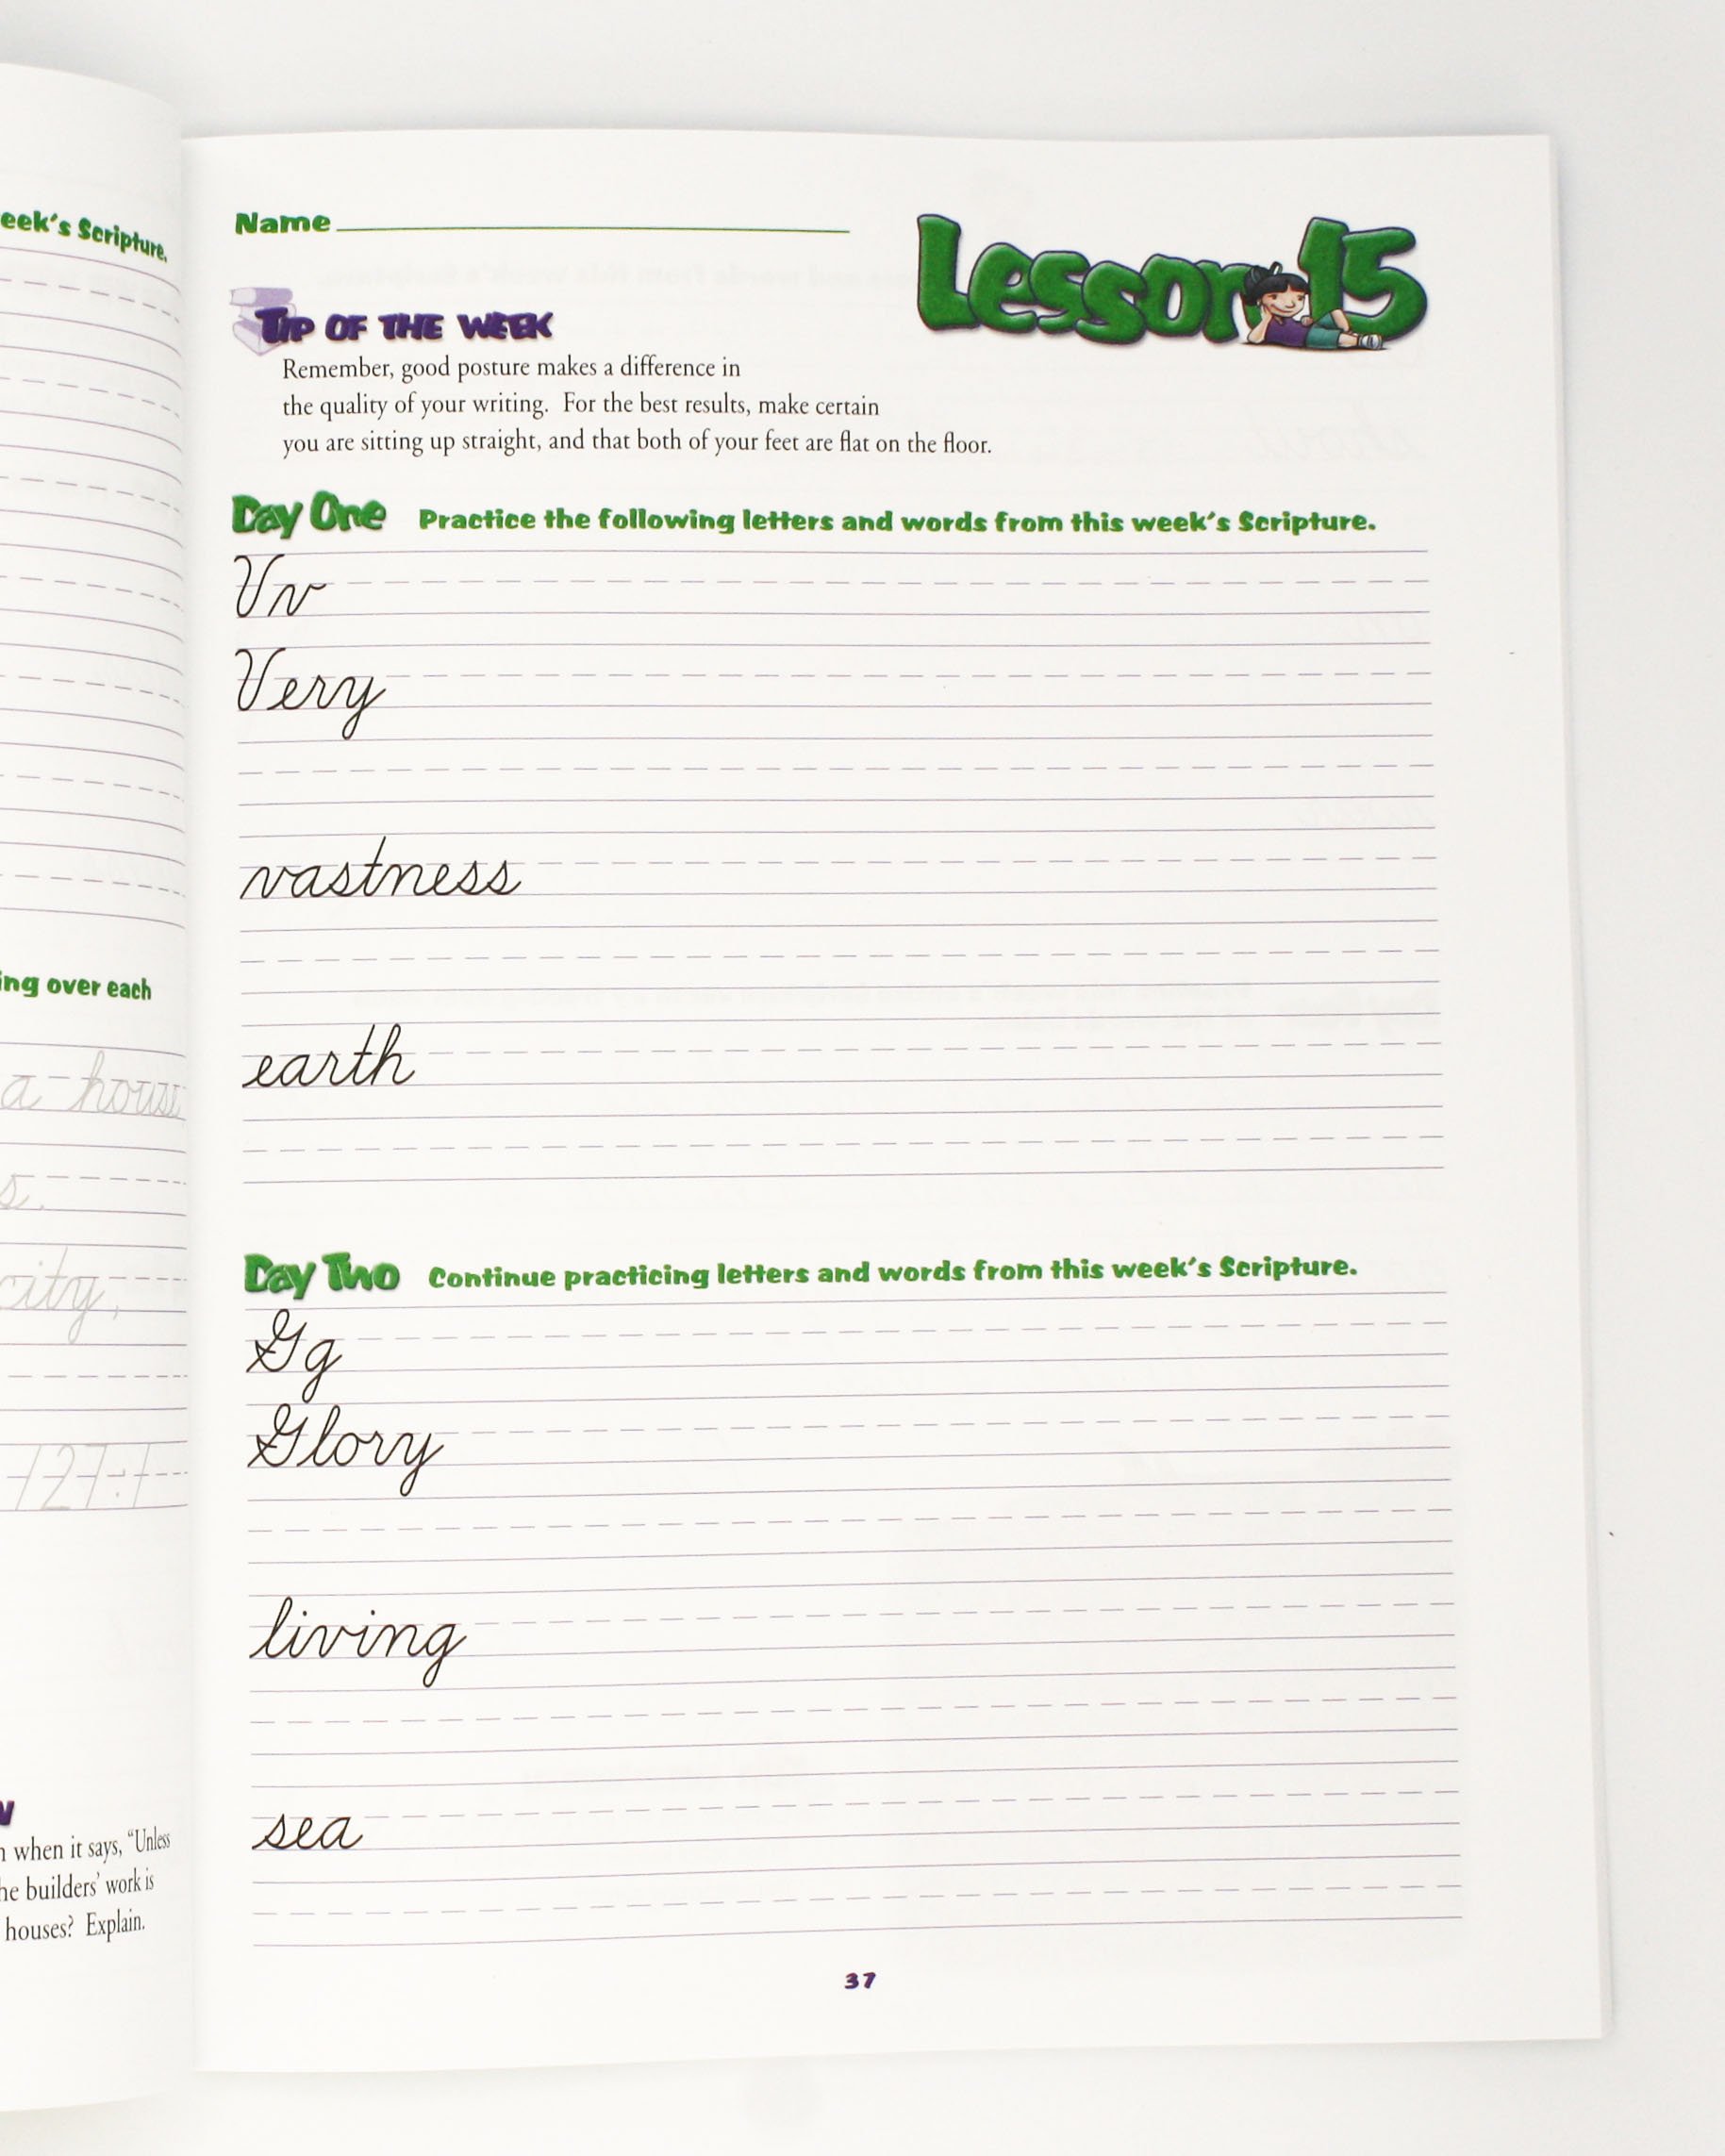 Scripture.
over each
a
city,
127:1
when it says, "Unless
builders' work is
houses? Explain.
Name
Lesson 15
Tip of the Week
Remember, good posture makes a difference in
the quality of your writing. For the best results, make certain
you are sitting up straight, and that both of your feet are flat on the floor.
Day One Practice the following letters and words from this week's Scripture.
Vv
Very
vastness
earth
Day Two Continue practicing letters and words from this week's Scripture.
Gg
Glory
living
sea
37